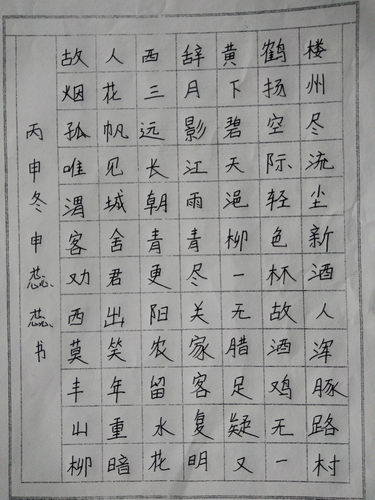 故人西辞黄鹤楼
烟花三月下扬州
孤帆远影碧空尽
唯见长江天际流
渭城朝雨浥轻尘
客舍青青柳色新
劝君更尽一杯酒
西出阳关无故人
莫笑农家腊酒浑
丰年留客足鸡豚
山重水复疑无路
柳暗花明又一村
丙申冬申蕊蕊书